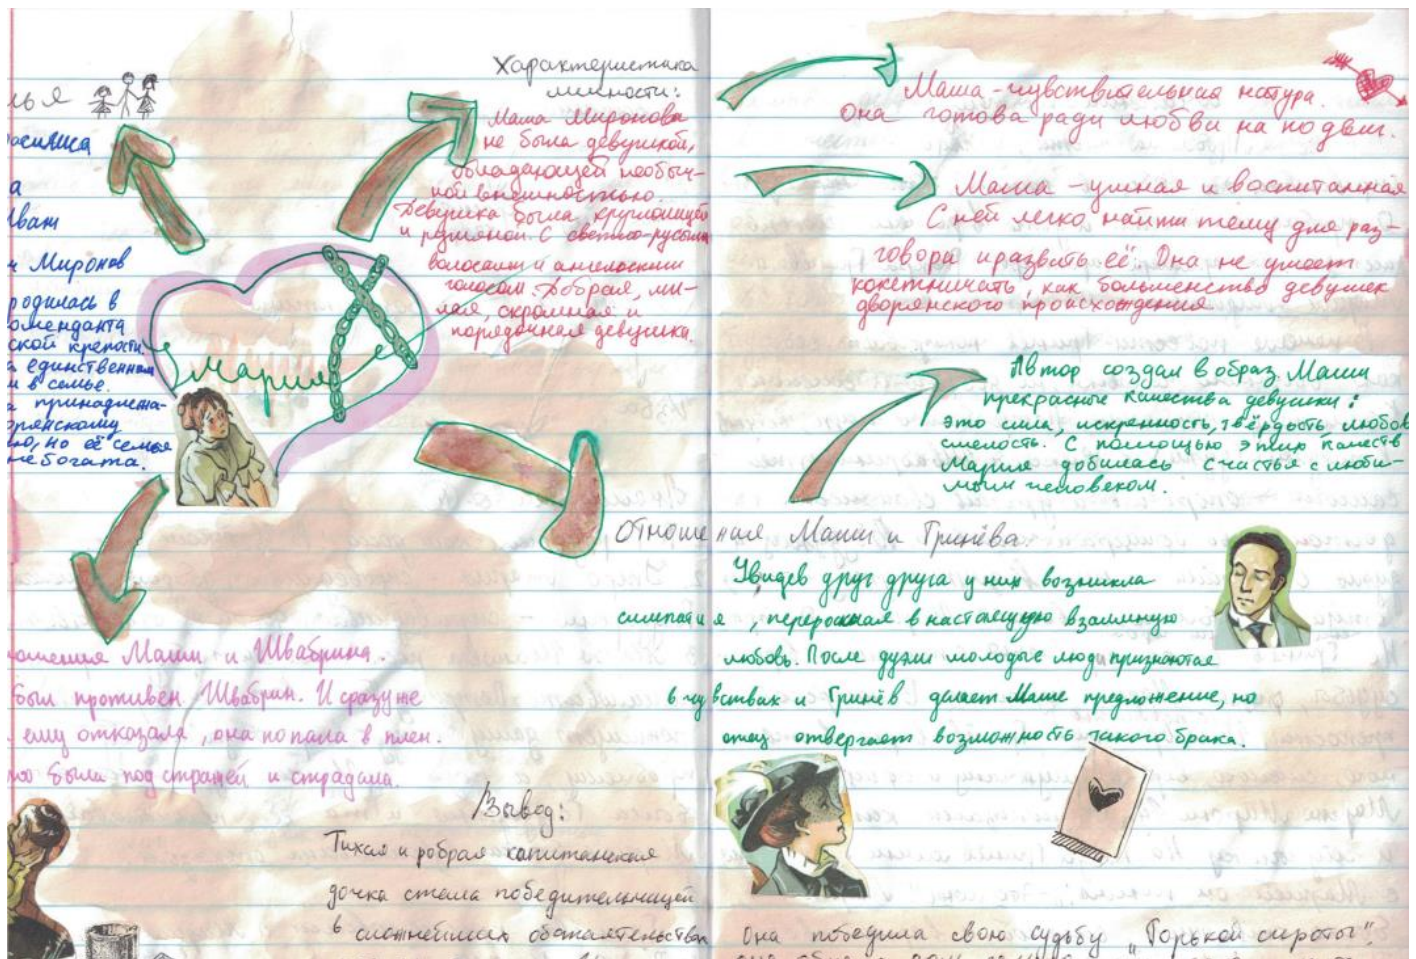 лья
Василиса
а
Иван
ч Миронов
родилась в
коменданта
ской крепости.
а единственным
м в семье.
а принадлежа-
орянскому
ю, но её семья
небогата.
Характеристика
личности:
Маша Миронова
не была девушкой,
обладающей необыч-
ной внешностью.
Девушка была круглолицей
и румяной. С светло-русыми
волосами и ангельским
голосом. Добрая, ми-
лая, скромная и
порядочная девушка.
Мария
ношения Маши и Швабрина.
был противен Швабрин. И сразу же
ему отказала, она попала в плен.
была под стражей и страдала.
Вывод:
Тихая и робкая капитанская
дочка стала победительницей
в сложнейших обстоятельствах
Маша - чувствительная натура.
Она готова ради любви на подвиг.
Маша - умная и воспитанная
С ней легко найти тему для раз-
говора и развить её. Она не умеет
кокетничать, как большинство девушек
дворянского происхождения
Автор создал в образ Маши
прекрасные качества девушки:
это сила, искренность, твёрдость любовь
смелость. С помощью этих качеств
Мария добилась счастья с люби-
мым человеком.
Отношения Маши и Гринёва.
Увидев друг друга у них возникла
симпатия, переросшая в настоящую взаимную
любовь. После дуэли молодые люди признаются
в чувствах и Гринёв делает Маше предложение, но
отец отвергает возможность такого брака.
Она победила свою судьбу „Горькой сироты".